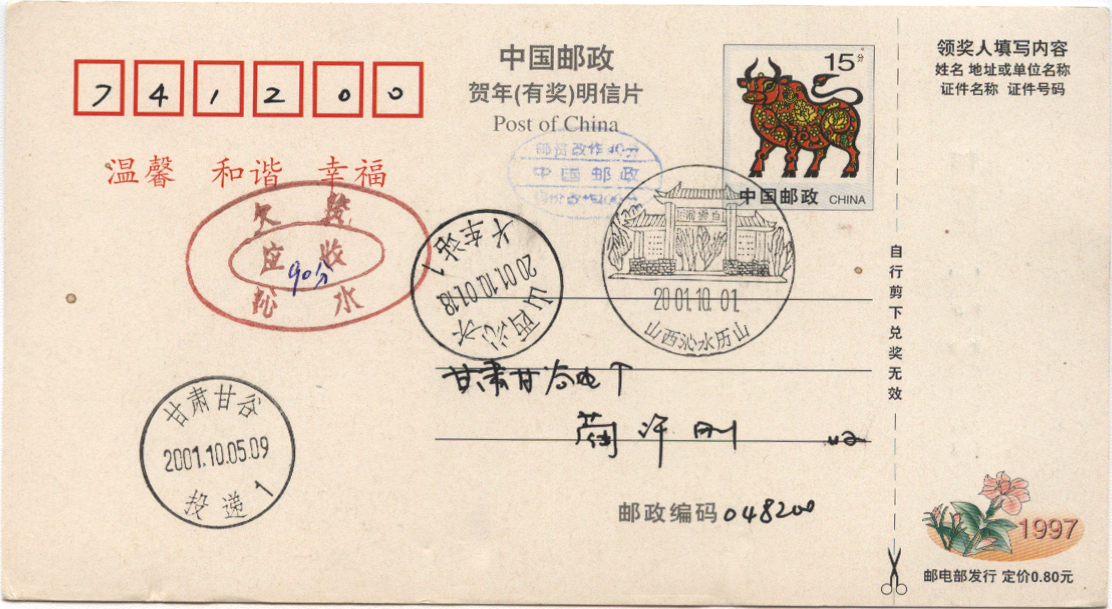 741200
中国邮政
贺年(有奖)明信片
Post of China
15分
中国邮政 CHINA
领奖人填写内容
姓名 地址或单位名称
证件名称 证件号码
温馨 和谐 幸福
中国邮政
欠 资
应 收
90分
沁 水
山西沁水
2001.10.01.18
火车站1
2001.10.01
山西沁水历山
自行剪下兑奖无效
甘肃甘谷
刚 收
甘肃甘谷
2001.10.05.09
投递1
邮政编码 048200
1997
邮电部发行 定价0.80元